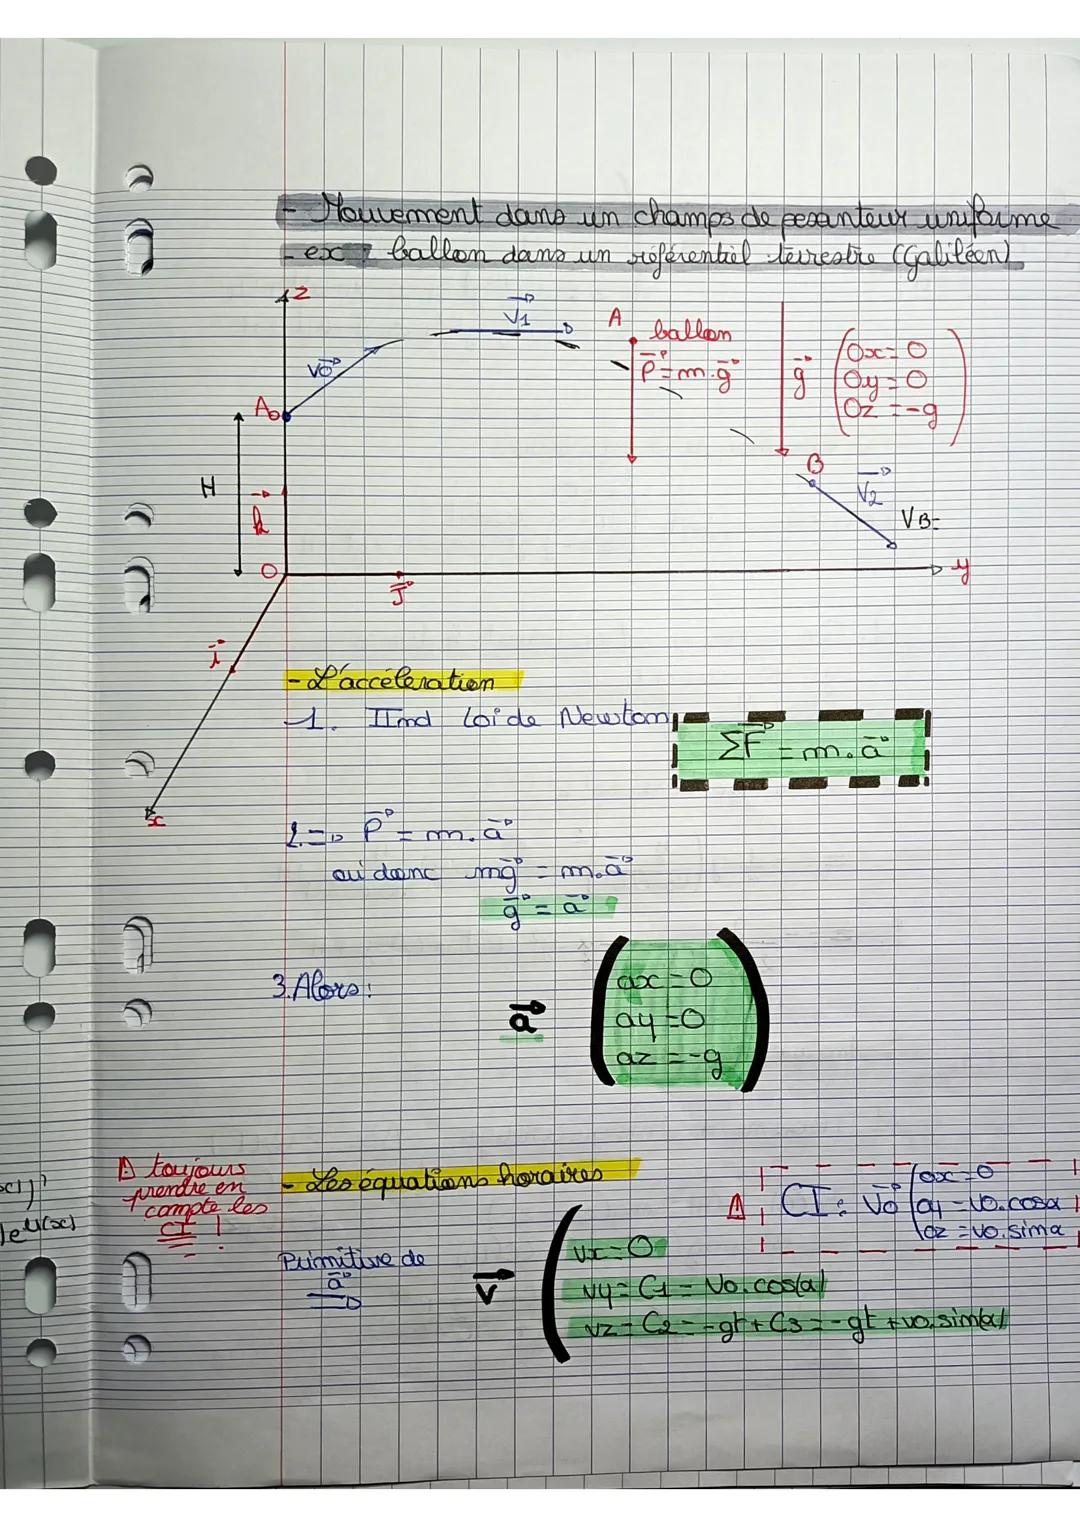 - Mouvement dans un champs de pesanteur uniforme
- ex : ballon dans un référentiel terrestre (Galiléen)
z
V1
A
ballon
V0
P = m.g
g
Ox = 0
Oy = 0
Oz = -g
A0
B
V2
H
VB=
k
O
y
J
i
- L'accéleration
1. IInd Loi de Newton
ΣF = m.a
x
2. => P = m.a
oui donc mg = m.a
g = a
3. Alors :
a
ax = 0
ay = 0
az = -g
⚠ toujours
prendre en
compte les
CI !
- Les équations horaires
⚠ CI : V0
ox = 0
oy = v0.cosa
oz = v0.sina
Primitive de
a
V
vx = 0
vy = C1 = V0.cos(a)
vz = C2 = -gt + C3 = -gt + v0.sin(a)